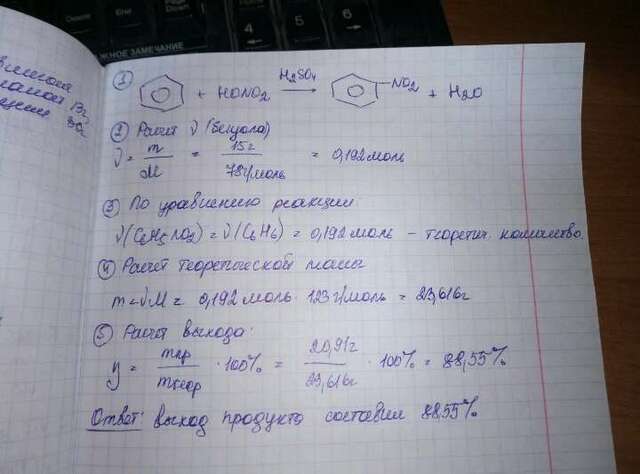 Delete
End
Page Down
4
5
6
ЖНОЕ ЗАМЕЧАНИЕ
1) + HONO2 H2SO4 → NO2 + H2O
2) Расчет ν (бензола)
ν = m/M = 15г/78г/моль = 0,192 моль
3) По уравнению реакции
ν(C6H5NO2) = ν(C6H6) = 0,192 моль – теоретич. количество.
4) Расчет теоретической массы
m = νM = 0,192 моль · 123 г/моль = 23,616г
5) Расчет выхода:
y = mпр/mтеор · 100% = 20,91г/23,616г · 100% = 88,55%
Ответ: выход продукта составил 88,55%